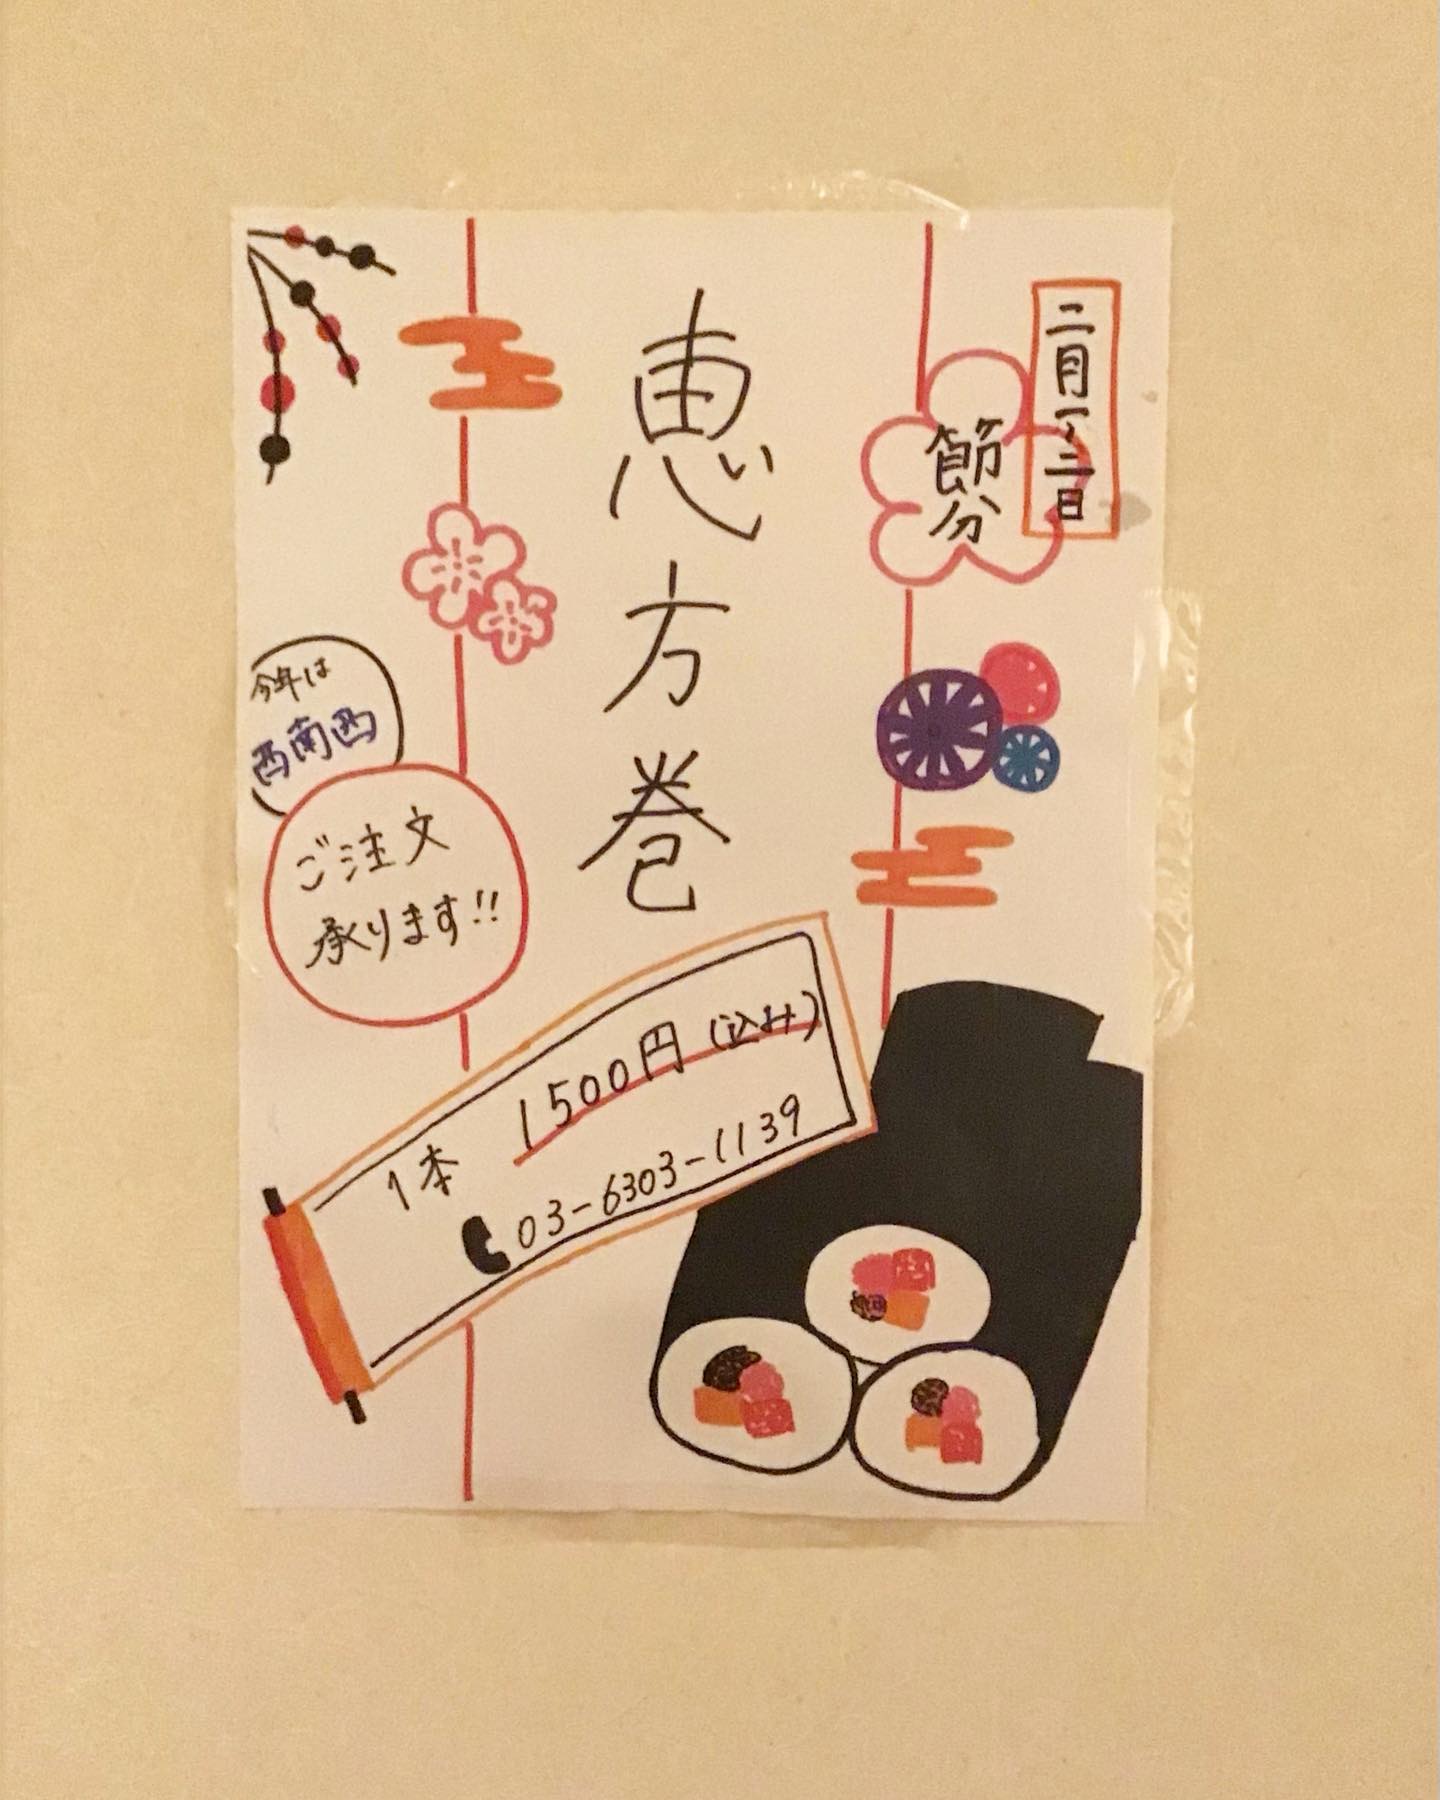 二月一、二日
節分
恵方巻
今年は
西南西
ご注文
承ります!!
1本 1500円(込み)
03-6303-1139